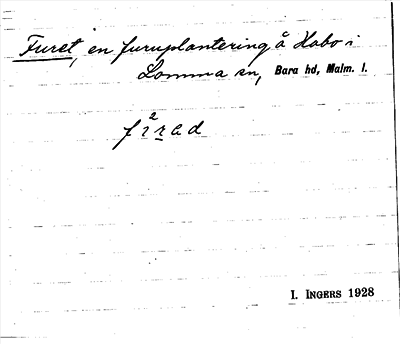 Furet, en furuplantering å Habo i
Lomma sn, Bara hd, Malm. l.
I. INGERS 1928